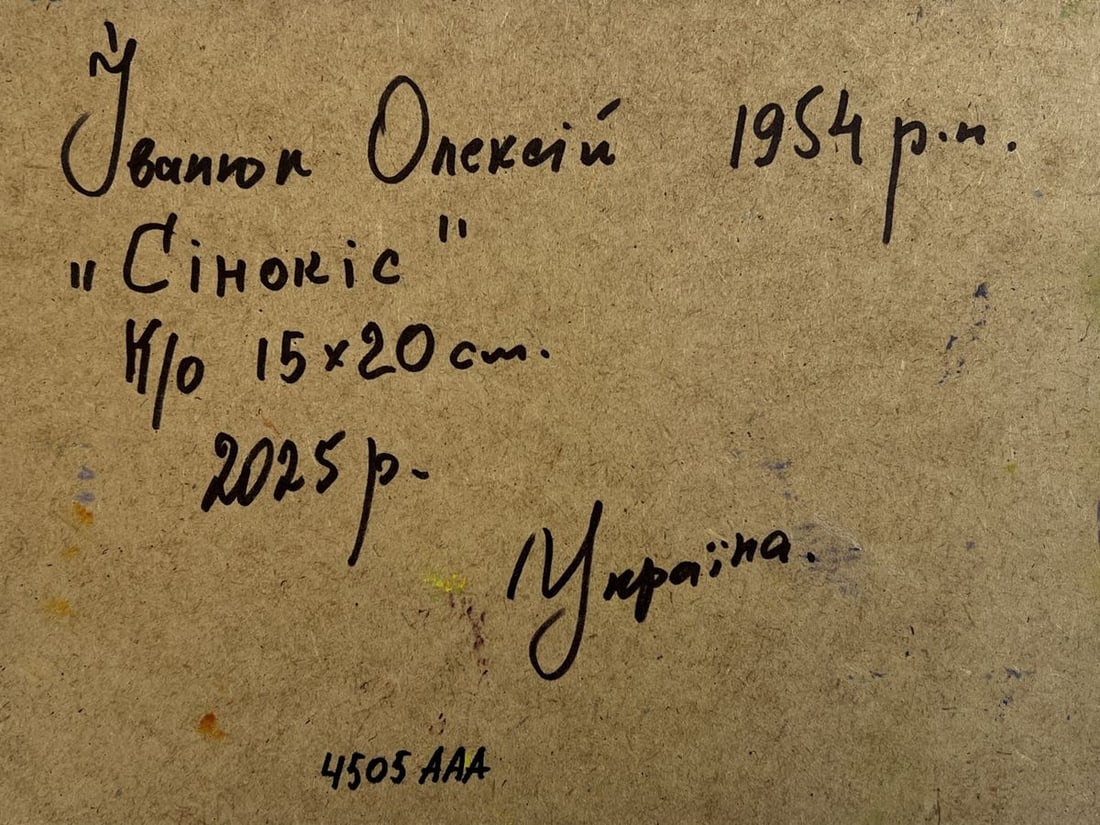 Іванюк Олексій 1954 р.н.
"Сінокіс"
К/о 15x20 см.
2025 р.
Україна.
4505 AAA